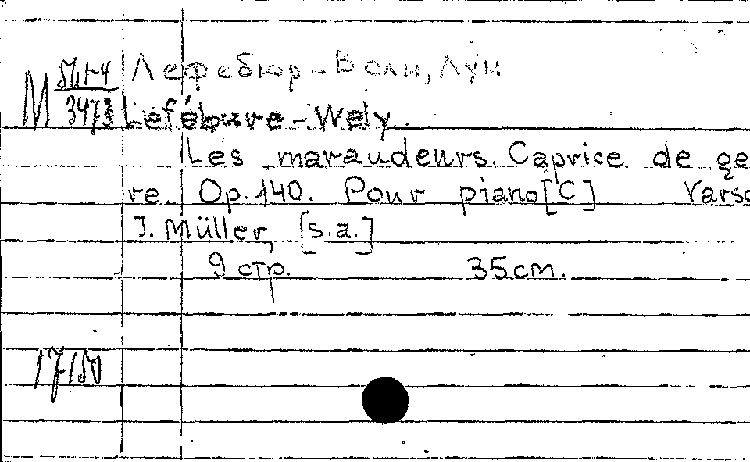 Лефебюр-Вели, Луи
М
3473 Lefébure-Wely.
Les maraudeurs. Caprice de ge
re. Op. 140. Pour piano [C] Varso
J. Müller, [s.a.]
9 стр. 35 см.
17150